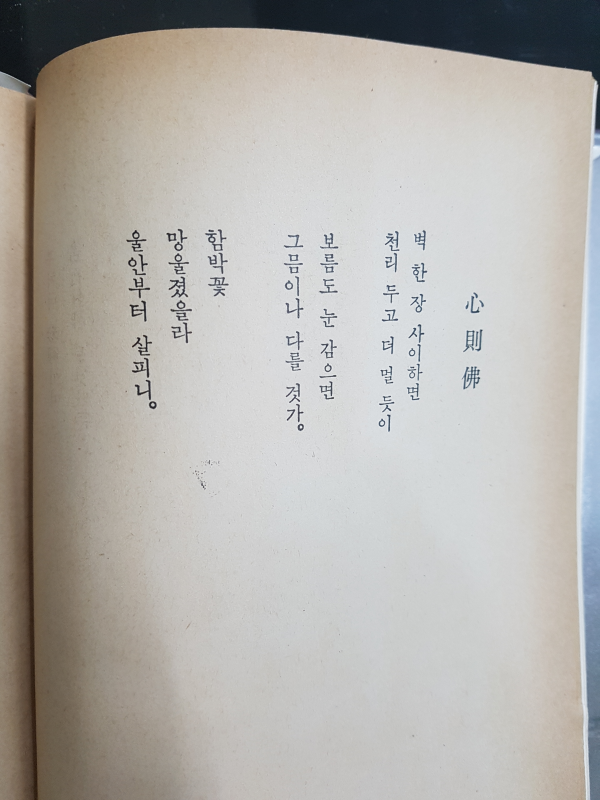 心則佛
벽 한 장 사이하면
천리 두고 더 멀 듯이
보름도 눈 감으면
그믐이나 다를 것가。
함박꽃
망울졌을라
울안부터 살피니。